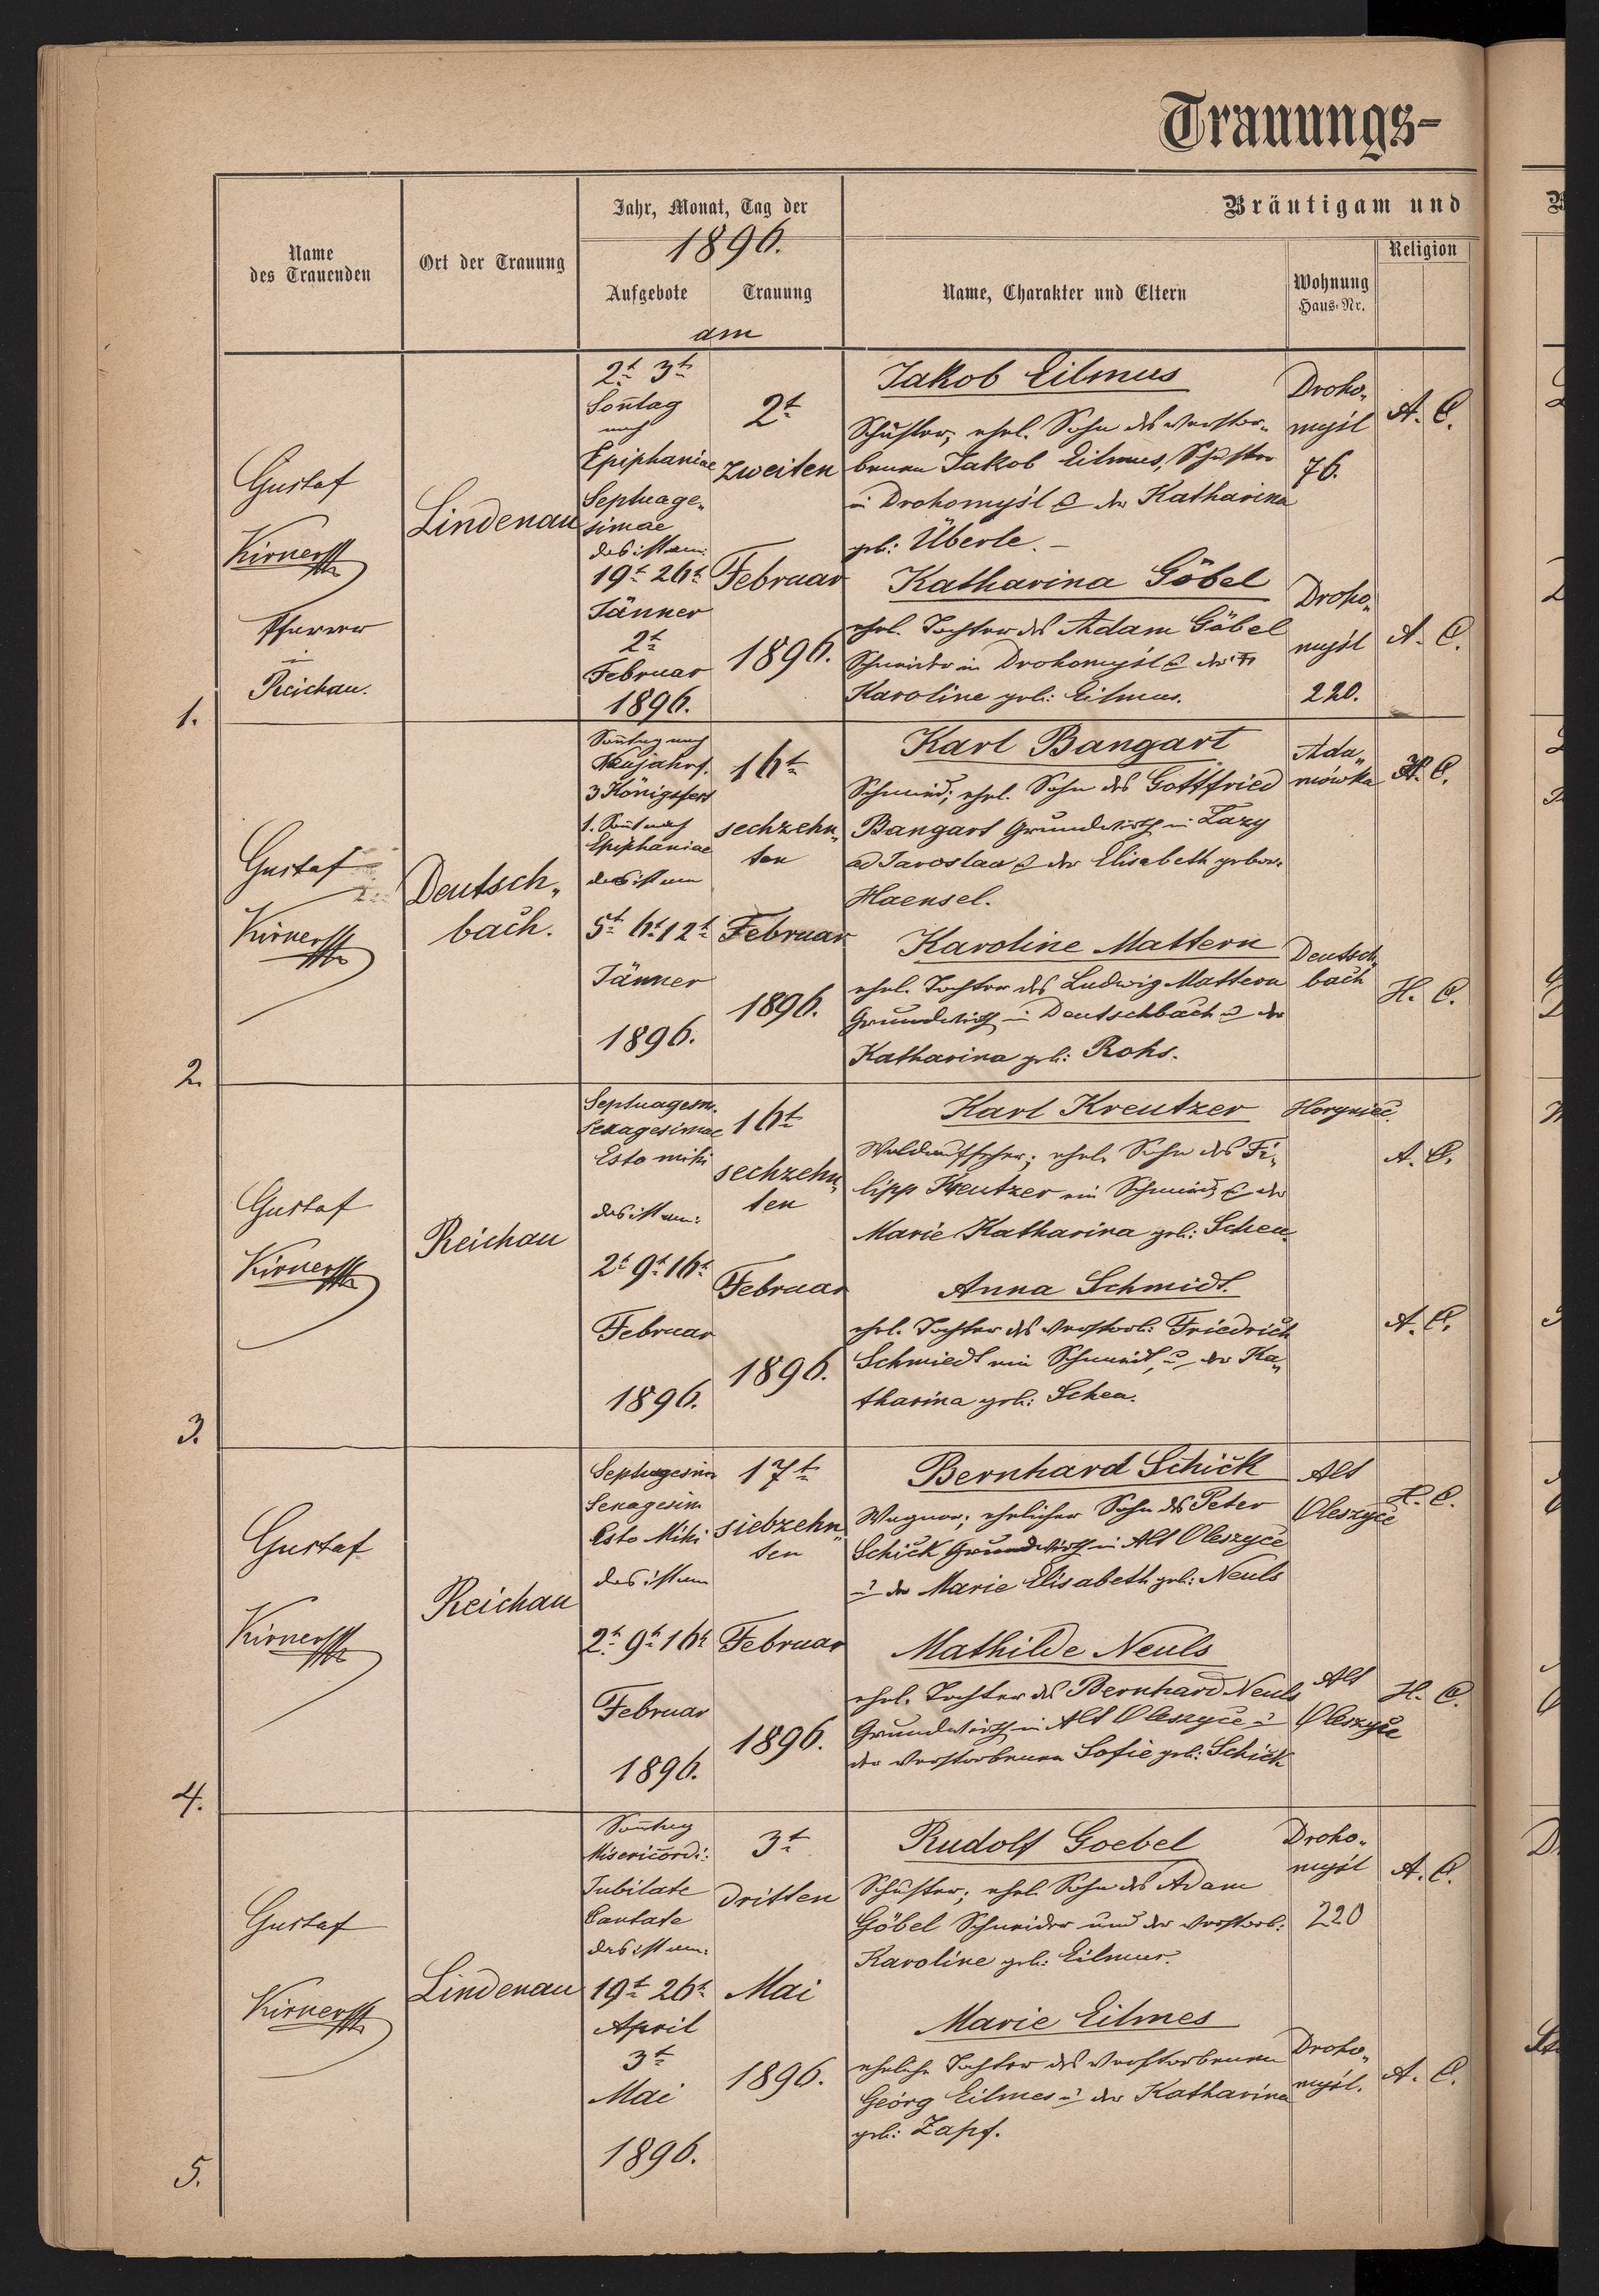 Trauungs-
Name
des Trauenden
Ort der Trauung
Jahr, Monat, Tag der
1896.
Aufgebote
Trauung
am
Bräutigam und
Name, Charakter und Eltern
Wohnung
Haus-Nr.
Religion
1.
Gustaf
Kirner
Pfarrer
in
Reichau.
Lindenau
2t 3t
Sontag
nach
Epiphaniae
Septuage-
simae
das ist am:
19t 26t
Jänner
2t
Februar
1896.
2t
zweiten
Februar
1896.
Jakob Eilmus
Schuster, ehel. Sohn des verstor-
benen Jakob Eilmus, Schuster
in Drohomyśl & der Katharina
geb: Überle.
Droho-
myśl
76.
A. C.
Katharina Göbel
ehel. Tochter des Adam Göbel
Schneider in Drohomyśl & der †
Karoline geb: Eilmus.
Droho-
myśl
220.
A. C.
2.
Gustaf
Kirner
Deutsch-
bach.
Sontag nach
Neujahrf.
3 Königsfest
1. Sont nach
Epiphaniae
das ist am
5t 6t 12t
Jänner
1896.
16t
sechzehn-
ten
Februar
1896.
Karl Bangart
Schmied; ehel. Sohn des Gottfried
Bangart Grundwirth in Łazy
ad Jaroslau & der Elisabeth gebor.
Haensel.
Ada-
mówka
H. C.
Karoline Mattern
ehel. Tochter des Ludwig Mattern
Grundwirth in Deutschbach & der
Katharina geb: Rohs.
Deutsch-
bach
H. C.
3.
Gustaf
Kirner
Reichau
Septuagesm.
Sexagesimae
Esto mihi
das ist am:
2t 9t 16t
Februar
1896.
16t
sechzehn-
ten
Februar
1896.
Karl Kreutzer
Waldaufseher; ehel. Sohn des Fi-
lipp Kreutzer ein Schmied, & der
Marie Katharina geb: Schea.
Horyniec
A. C.
Anna Schmidt.
ehel. Tochter des verstorb: Friedrich
Schmiedt ein Schmied, & der Ka-
tharina geb: Schea.
A. C.
4.
Gustaf
Kirner
Reichau
Septuagesim
Sexagesim
Esto Mihi
das ist am
2t 9t 16t
Februar
1896.
17t
siebzehn-
ten
Februar
1896.
Bernhard Schick
Wagner; ehelicher Sohn des Peter
Schick Grundwirth in Alt Oleszyce
u der Marie Elisabeth geb: Neuls
Alt
Oleszyce
H. C.
Mathilde Neuls
ehel. Tochter des Bernhard Neuls
Grundwirth in Alt Oleszyce u
der verstorbenen Sofie geb: Schick
Alt
Oleszyce
H. C.
5.
Gustaf
Kirner
Lindenau
Sontag
Misericordi:
Jubilate
Cantate
das ist am:
19t 26t
April
3t
Mai
1896.
3t
dritten
Mai
1896.
Rudolf Goebel
Schuster; ehel. Sohn des Adam
Göbel Schneider und der verstorb:
Karoline geb: Eilmus.
Droho-
myśl
220
A. C.
Marie Eilmes
eheliche Tochter des verstorbenen
Georg Eilmes u der Katharina
geb: Zapf.
Droho-
myśl.
A. C.